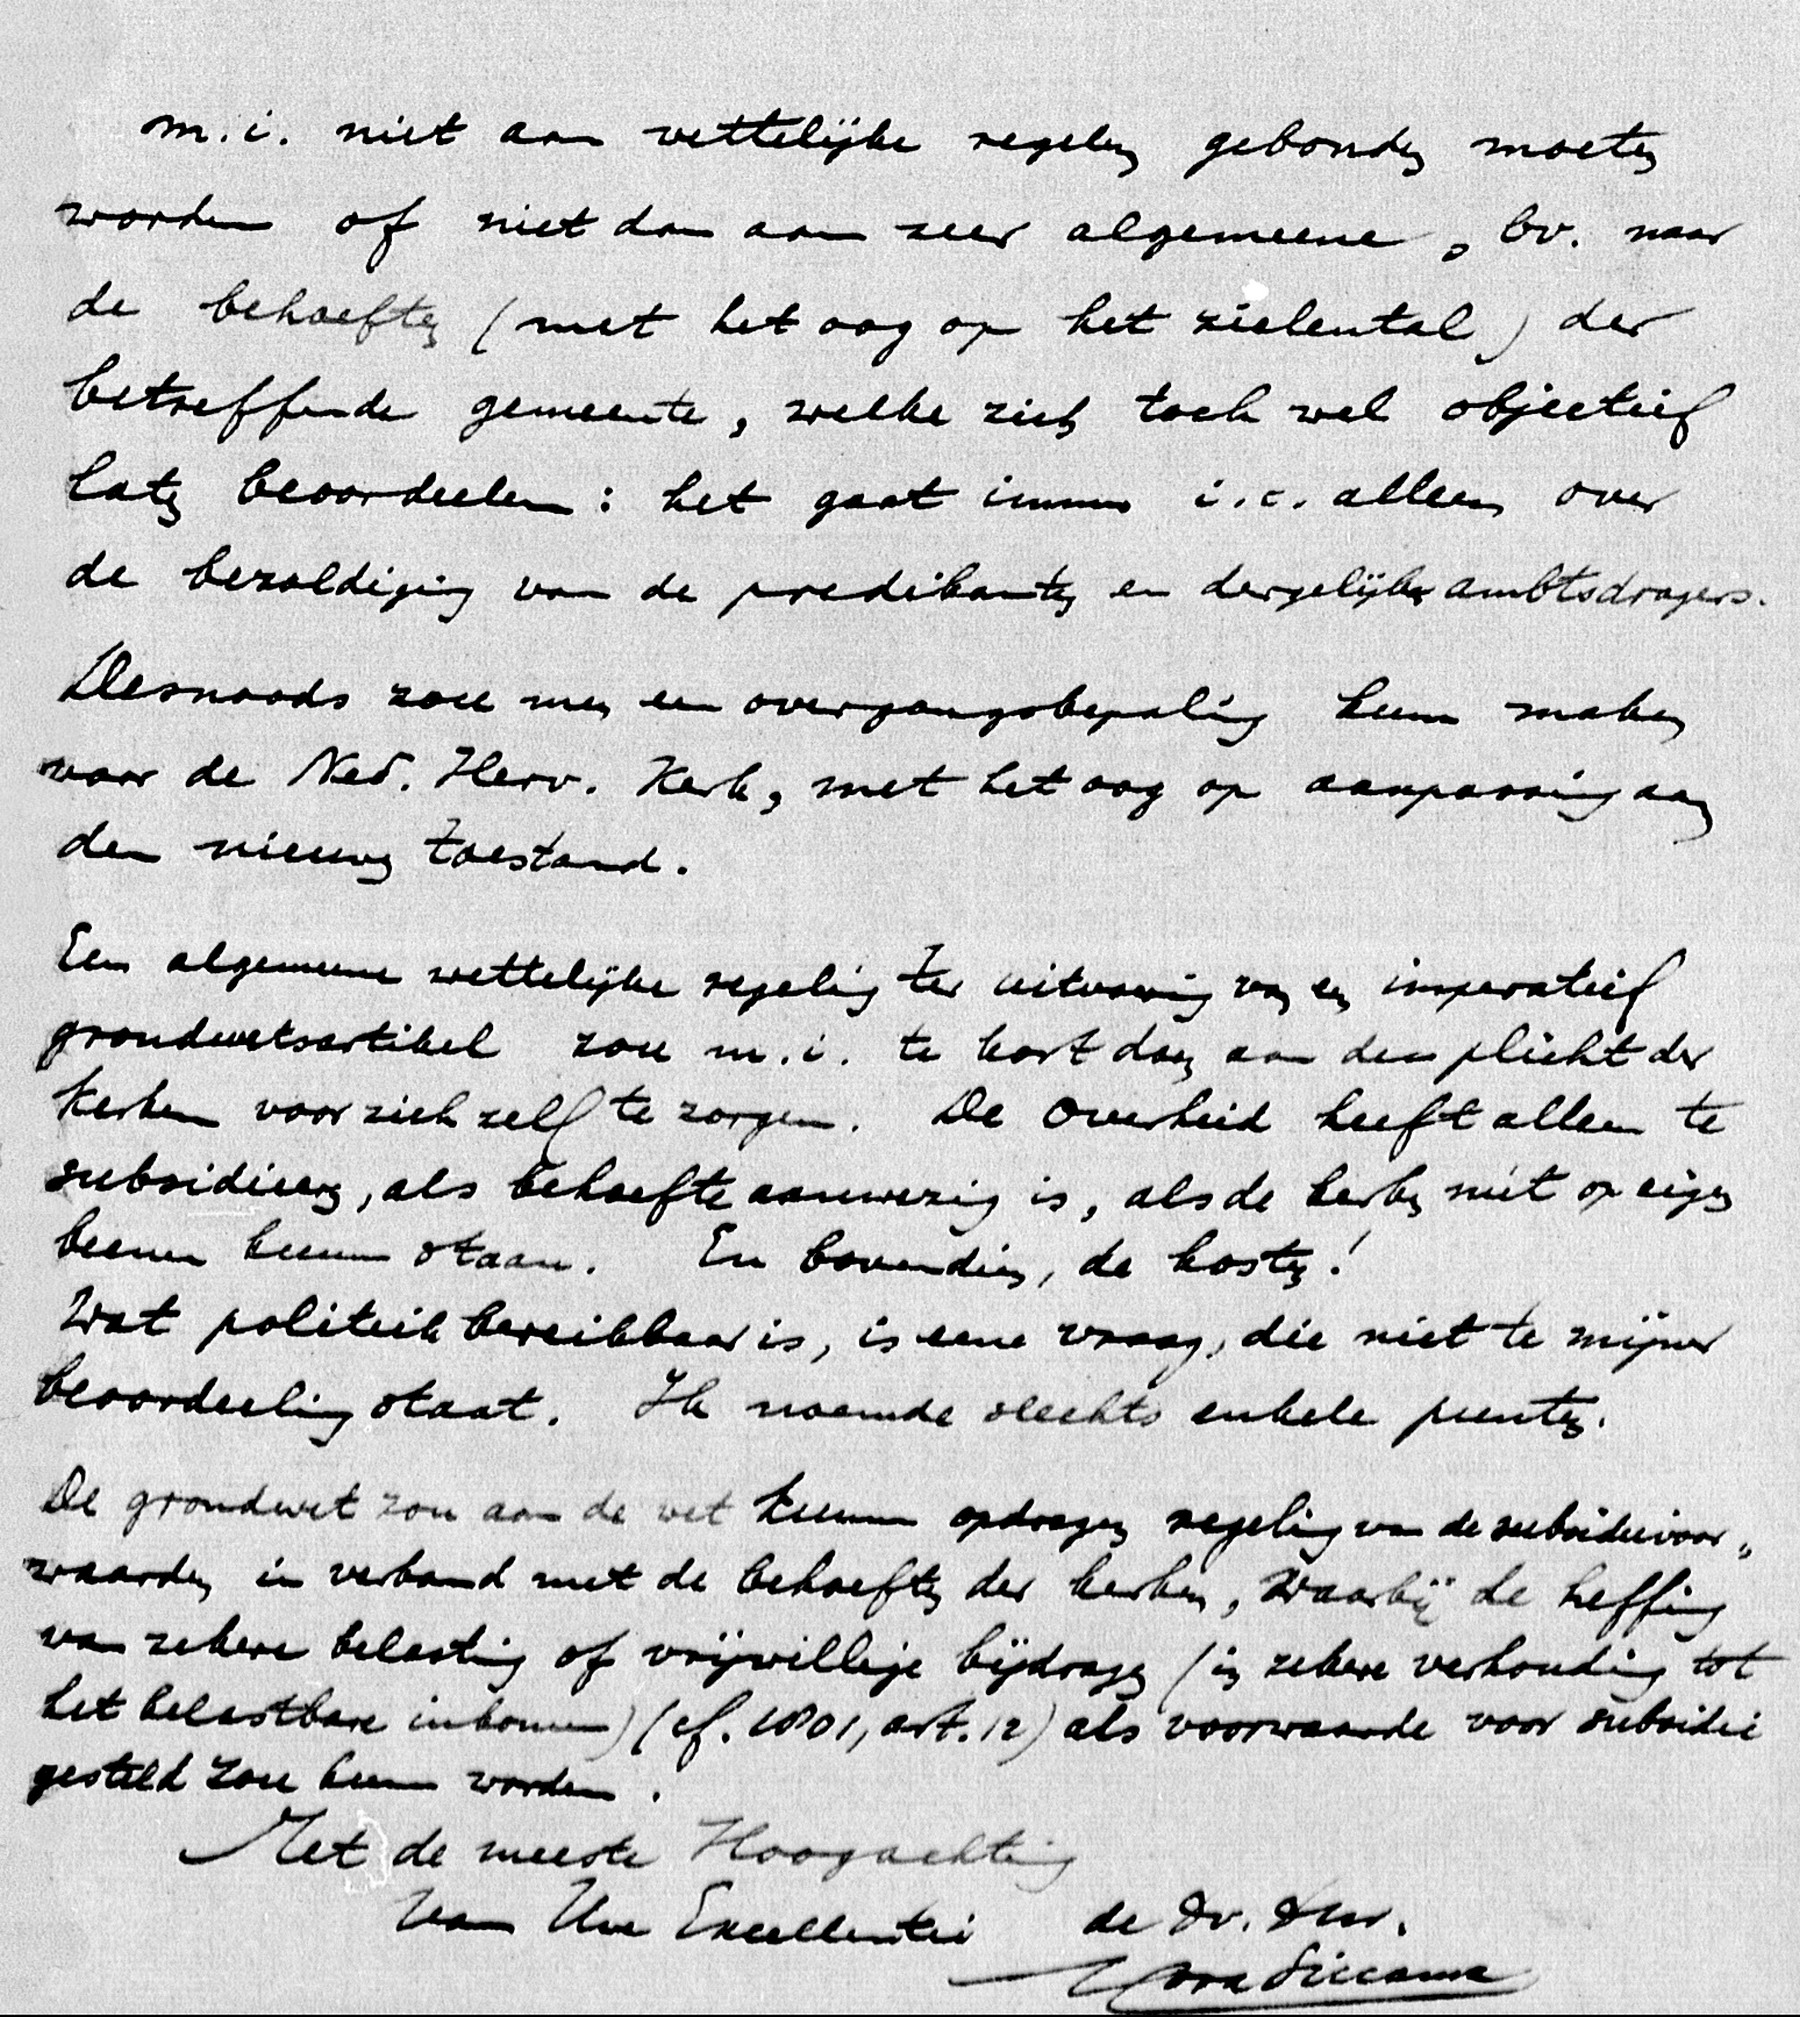 m.i. niet aan wettelijke regelen gebonden moeten
worden of niet dan aan zeer algemeene, bv. naar
de behoeften (met het oog op het zielental) der
betreffende gemeente, welke zich toch wel objectief
laten beoordeelen: het gaat immers i.c. alleen over
de bezoldiging van de predikanten en dergelijke ambtsdragers.
Desnoods zou men een overgangsbepaling kunnen maken
voor de Ned. Herv. Kerk, met het oog op aanpassing aan
den nieuwen toestand.
Een algemeene wettelijke regeling ter uitvoering van een imperatief
grondwetsartikel zou m.i. te kort doen aan den plicht der
kerken voor zich zelf te zorgen. De Overheid heeft alleen te
subsidieeren, als behoefte aanwezig is, als de kerken niet op eigen
beenen kunnen staan. En bovendien, de kosten!
Wat politiek bereikbaar is, is eene vraag, die niet te mijner
beoordeeling staat. Ik noemde slechts enkele punten.
De grondwet zou aan de wet kunnen opdragen regeling van de subsidievoor„
waarden in verband met de behoeften der kerken, waarbij de heffing
van zekere belasting of vrijwillige bijdragen (in zekere verhouding tot
het belastbare inkomen) (cf. 1801, art. 12) als voorwaarde voor subsidie
gesteld zou kunnen worden.
Met de meeste Hoogachting
Van Uwe Excellentie de Dv. Dnr.
Siccama